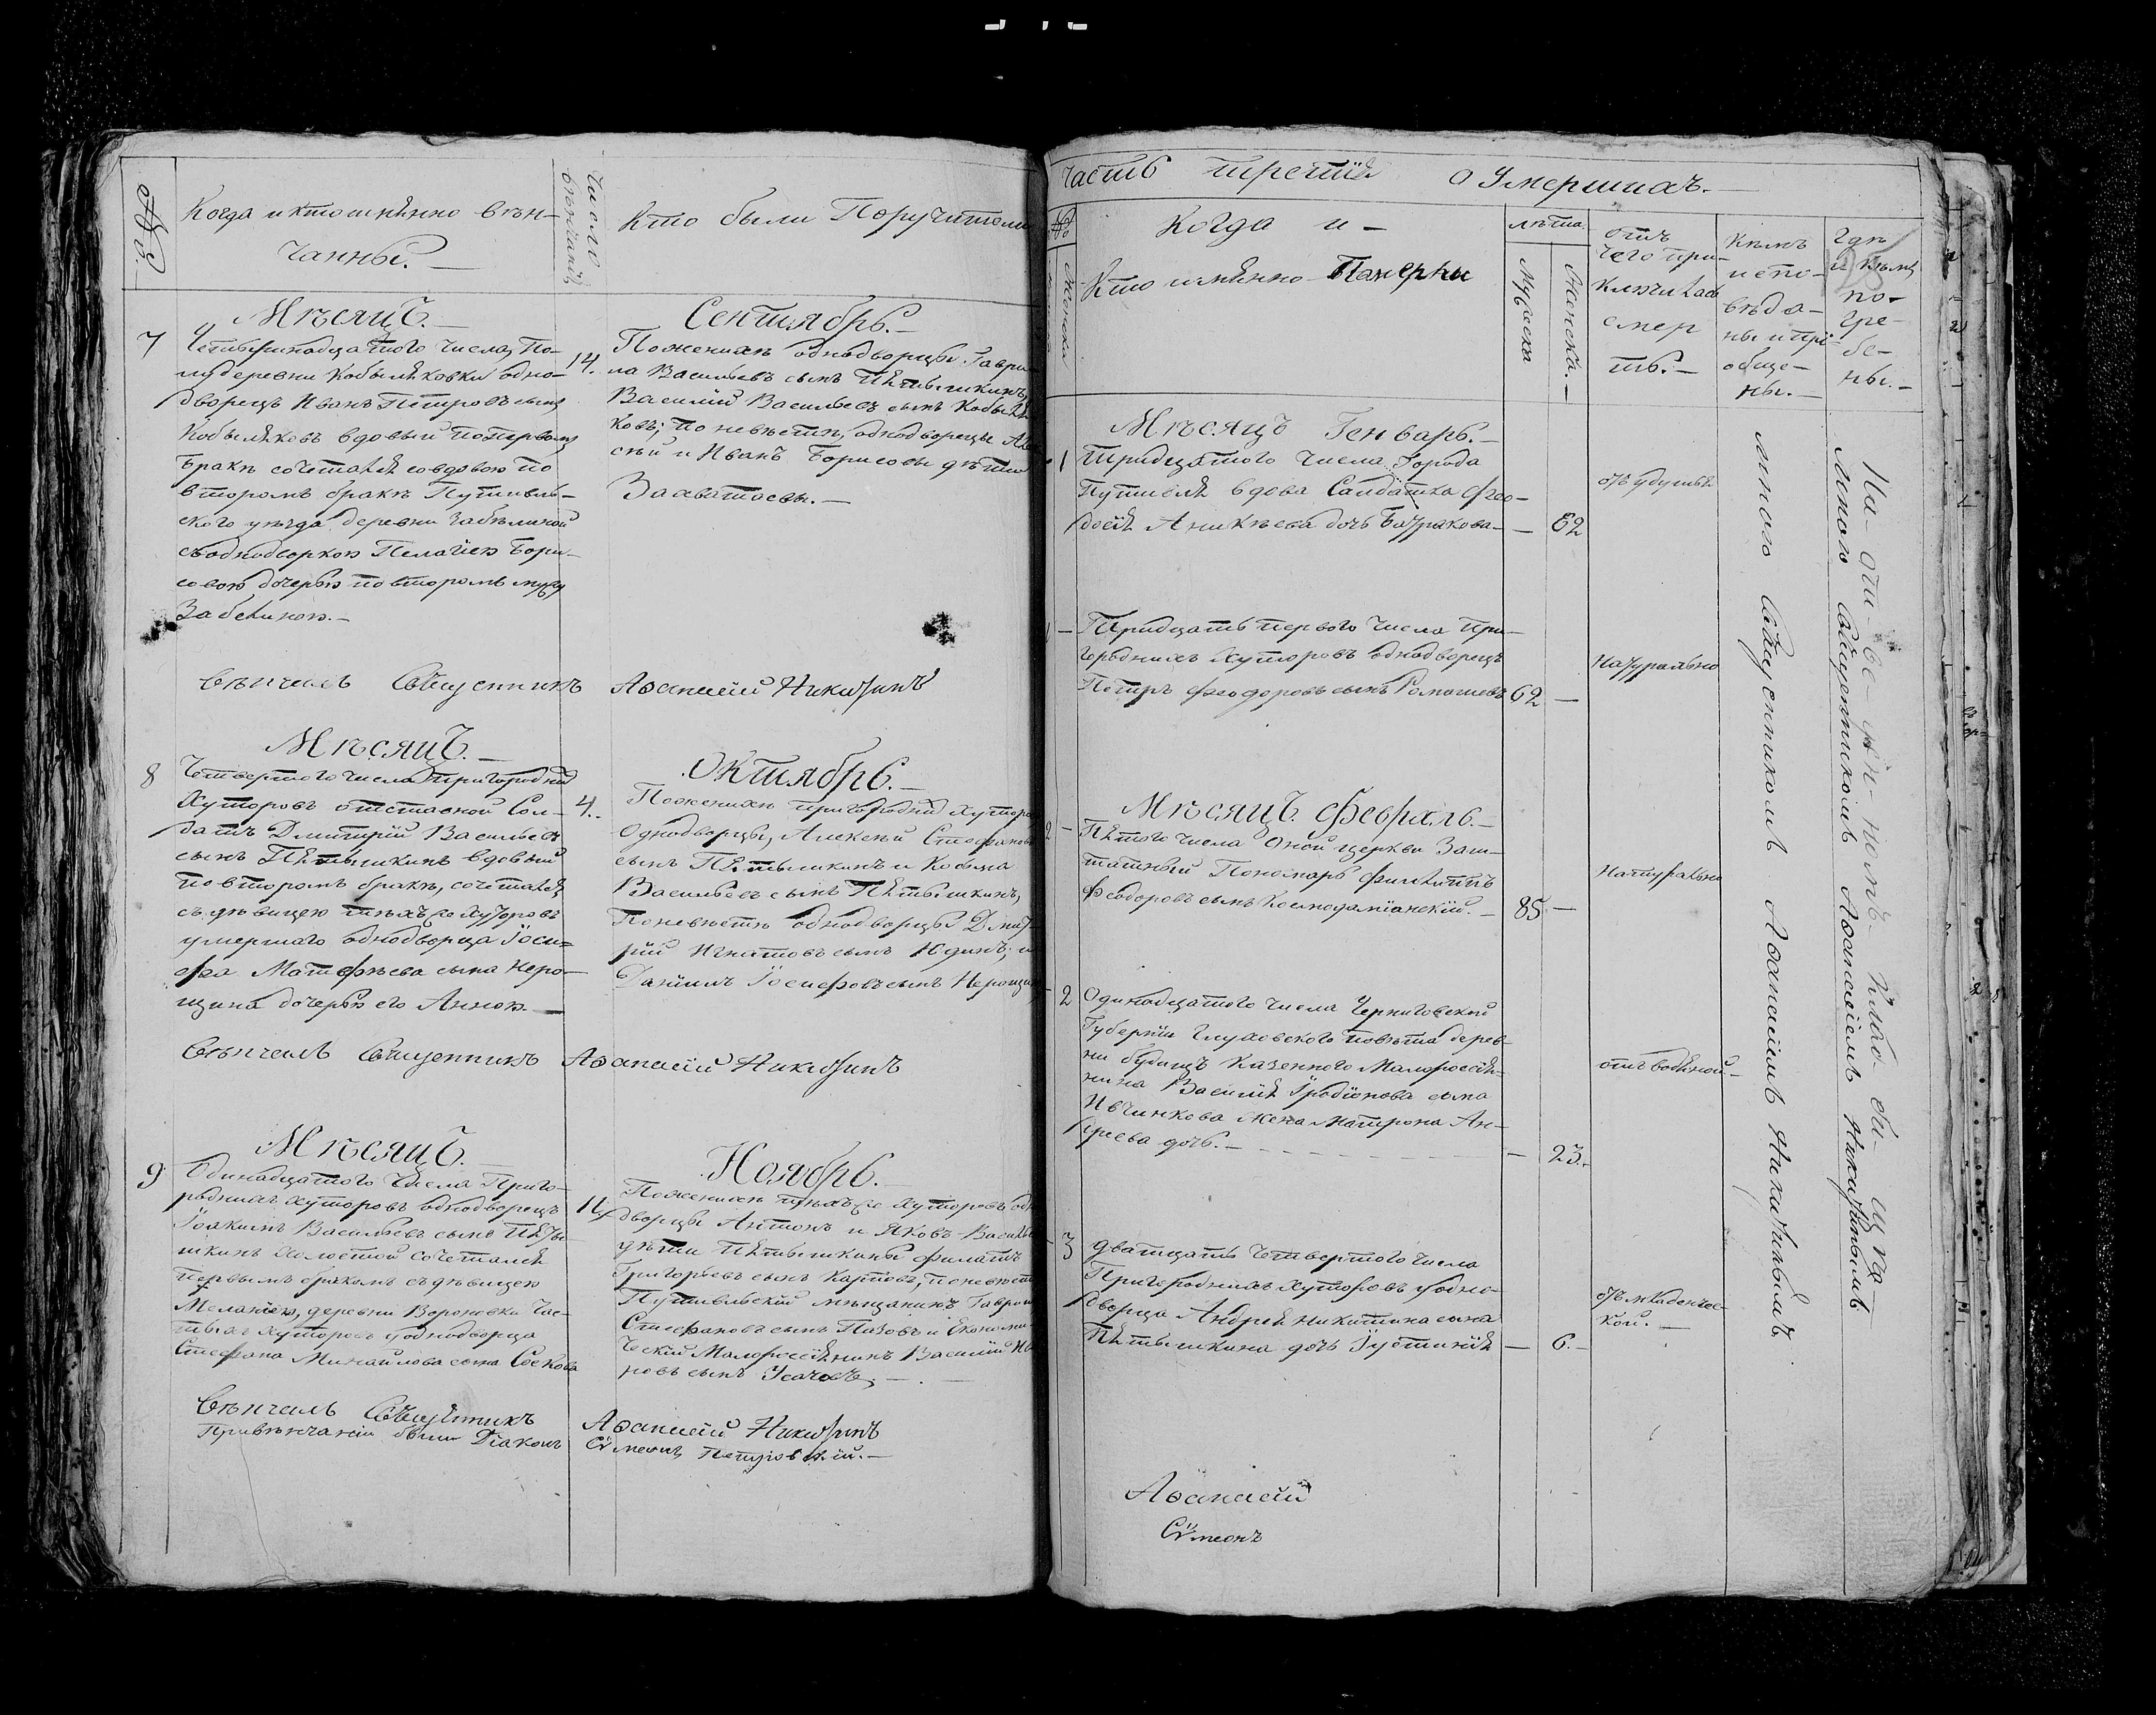 №.
Когда и кто имянно вѣн-
чанны.
число
вѣнчаній
Кто были Поручители
Мѣсяцъ.
Сентябрь.
7
Четырнадцатого числа, По-
лу деревни Кобыляковки одно-
дворецъ Иванъ Петровъ сынъ
Кобыляковъ вдовый по первомъ
бракѣ сочетался со вдовою по
второмъ бракѣ Путивль-
ского уѣзда деревни Забѣлиной
съ однодворкою Пелагіею Бори-
совою дочерью по второмъ мужу
Забелиною.
14.
По женихѣ однодворцы Гаври-
ла Васильевъ сынъ Пятышкинъ,
Василій Васильевъ сынъ Кобыля-
ковъ; по невѣстѣ, однодворцы
и Иванъ Борисовы дѣти
Захватаевы.
Вѣнчалъ Священникъ Аѳанасій Никитинъ
Мѣсяцъ.
Октябрь.
8
Четвертого числа пригородныхъ
Хуторовъ отставной Сол-
датъ Дмитрій Васильевъ
сынъ Пятышкинъ вдовый
по второмъ бракѣ, сочетался
съ дѣвицею тѣхъ же хуторовъ
умершаго однодворца Іоси-
фа Матфѣева сына Неро-
щина дочерью его Анною.
4.
По женихѣ пригородныхъ Хуторовъ
Однодворцы, Алексѣй Стефановъ
сынъ Пятышкинъ и Козьма
Васильевъ сынъ Пятышкинъ,
По невѣстѣ однодворцы Дмит-
рій Игнатовъ сынъ Юдинъ; и
Даніилъ Іосифовъ сынъ Нерощинъ
Вѣнчалъ Священникъ Аѳанасій Никитинъ
Мѣсяцъ.
Ноябрь.
9
Одинадцатого Числа Приго-
роднихъ хуторовъ однодворецъ
Іоакимъ Васильевъ сынъ Пяты-
шкинъ холостой сочетался
первымъ бракомъ съ дѣвицею
Меланіею, деревни Вороновки Час-
тныхъ хуторовъ однодворца
Стефана Михайлова сына Соскова
11.
По женихѣ тѣхъ же Хуторовъ одно-
дворцы Антонъ и Яковъ Васильевы
дѣти Пятышкины Филатъ
Григорьевъ сынъ Карповъ, по невѣстѣ
Путивльскій мѣщанинъ Гаврила
Стефановъ сынъ Пазовъ и Економи-
ческій Малороссіянинъ Василій
ровъ сынъ Усачовъ.
Вѣнчалъ Священникъ Аѳанасій Никитинъ
При вѣнчаніи былъ Діаконъ Сѵмеонъ Петровскій.
Часть третія О Умершихъ.
№
Женска
Когда и
Кто имянно Померли
лѣта.
Мужеска
Женска.
отъ
чего при-
ключилась
смер
ть.
кѣмъ
испо-
вѣда-
ны и прі-
обще-
ны.
гдѣ
и кѣмъ
по-
гре-
бе-
ны.
Мѣсяцъ Генварь.
1
Тридцатого числа Города
Путивля вдова Салдатка Фео-
досія Аникѣева дочь Батракова
62
отъ удушья
1
Тридцать первого числа При-
городнихъ Хуторовъ однодворецъ
Петръ Феодоровъ сынъ Ромашевъ
62
Натурально
Мѣсяцъ Февраль.
2
Пятого числа Оной церкви Заш-
татный Пономарь Филиппъ
Феодоровъ сынъ Космодаміанскій.
85
Натурально
2
Одинадцатого числа Черниговской
Губерніи Глуховского повѣта дерев-
ни Будищъ Казенного Малороссія-
нина Василія Іродіонова сына
Овчинкова жена Матрона Ан-
дреева дочь.
23.
отъ водяной.
3
Двадцать четвертого числа
Пригороднихъ хуторовъ у одно-
дворца Андрея Никитина сына
Пятышкина дочь Іустинія
6.
отъ младенчес-
кой.
мною Священникомъ Аѳанасіемъ Никитинымъ.
На отведенномъ кладбищѣ
Мною Священникомъ Аѳанасіемъ Никитинымъ
Аѳанасій
Сѵмеонъ